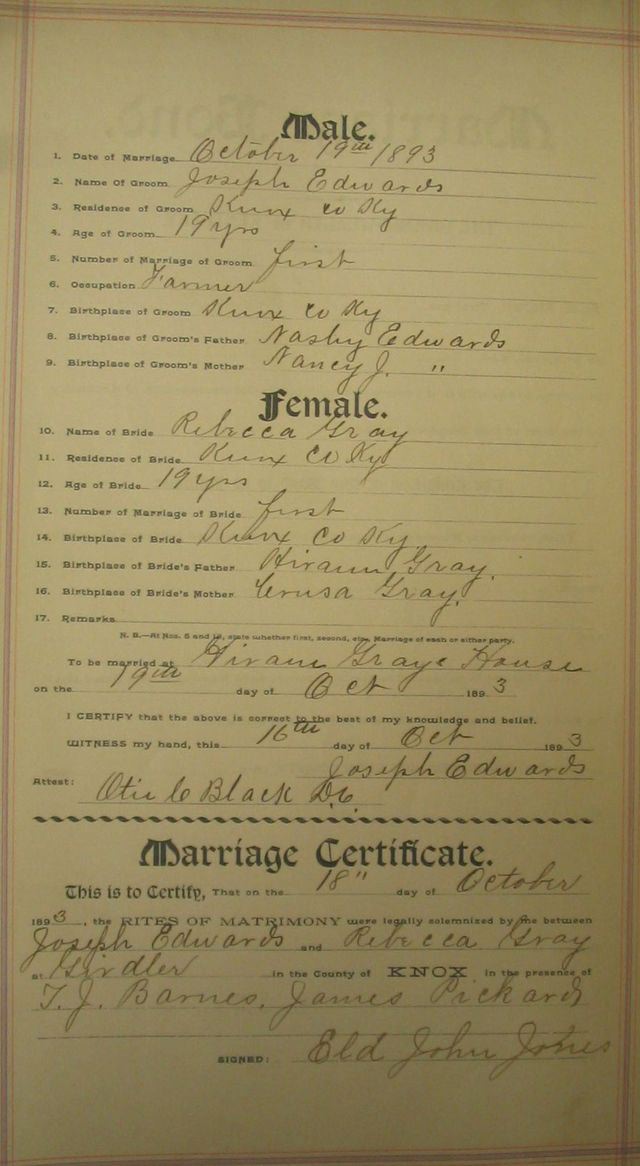 Male.
1. Date of Marriage October 19th 1893
2. Name Of Groom Joseph Edwards
3. Residence of Groom Knox co Ky
4. Age of Groom 19 yrs
5. Number of Marriage of Groom first
6. Occupation Farmer
7. Birthplace of Groom Knox co Ky
8. Birthplace of Groom's Father Nasby Edwards
9. Birthplace of Groom's Mother Nancy J. "
Female.
10. Name of Bride Rebecca Gray
11. Residence of Bride Knox Co Ky
12. Age of Bride 19 yrs
13. Number of Marriage of Bride first
14. Birthplace of Bride Knox Co Ky
15. Birthplace of Bride's Father Hiram Gray.
16. Birthplace of Bride's Mother Gray.
17. Remarks
N. B.—At Nos. 5 and 13, state whether first, second, etc., Marriage of each or either party.
To be married at Hiram Grays House
on the 19th day of Oct 1893
I CERTIFY that the above is correct to the best of my knowledge and belief.
WITNESS my hand, this 16th day of Oct 1893
Joseph Edwards
Attest: Otis C Black D.C.
Marriage Certificate.
This is to Certify, That on the 18" day of October
1893, the RITES OF MATRIMONY were legally solemnized by me between
Joseph Edwards and Rebecca Gray
at Girdler in the County of KNOX in the presence of
T. J. Barnes, James Pickard
SIGNED: Eld John Jones